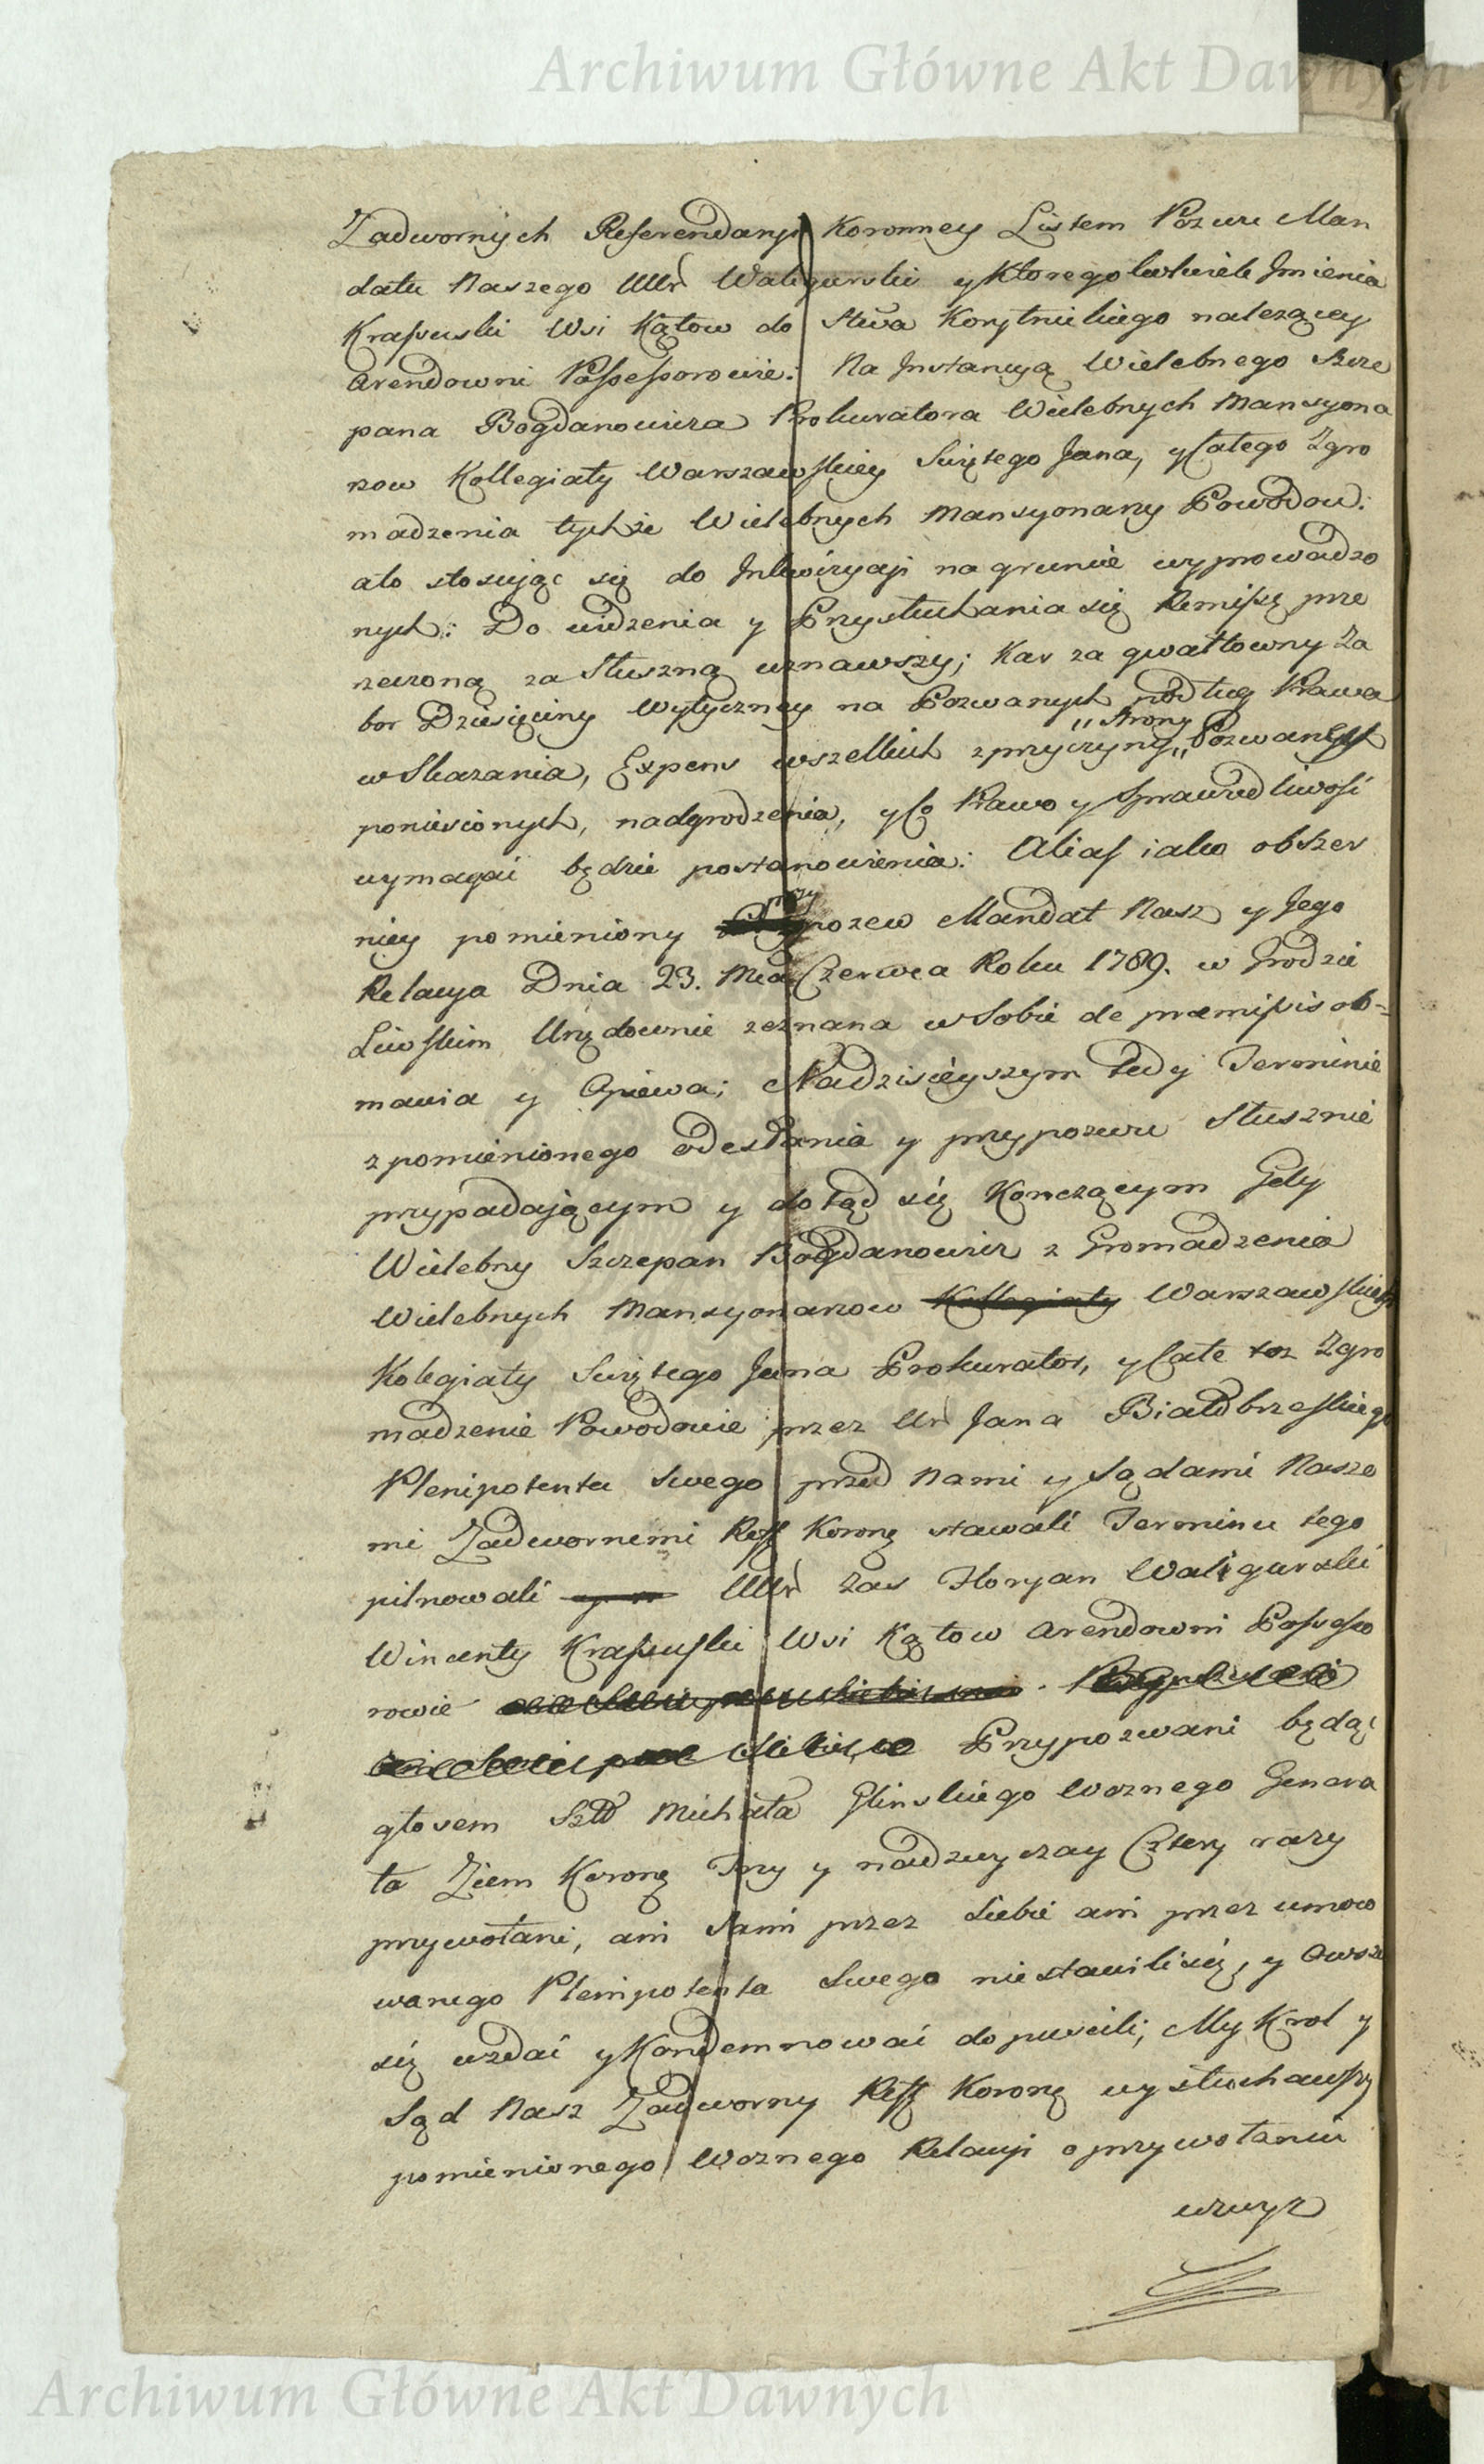 Archiwum Główne Akt Dawnych
Zadwornych Referendaryi Koronney Listem Pozwu Man
datu Naszego UUr Waligurski y Ktoregolwkiek Jmienia
Krassuski Wsi Kątow do Stwa Korytnickiego należący
Arendowni Possessorowie: Na Jnstancyą Wielebnego Szcze
pana Bogdanowicza Prokuratora Wielebnych Mansyona
rzow Kollegiaty Warszawskiey Swiętego Jana, y Całego Zgro
madzenia tychże Wielebnych Mansyonarzy Powodow:
a to stosuiąc się do Jnkwizycyi na gruncie wyprowadzo
nych: Do widzenia y Przysłuchania się Remissę prze
rzeczoną za Słuszną uznawszy; Kar za gwałtowny Za
bor Dziesięciny Wytyczney na Pozwanych podług Prawa
wskazania, Expens wszelkich z przyczyny „ Strony „ Pozwaney
poniesionych, nadgrodzenia, y Co Prawo y Sprawiedliwość
wymagać będzie postanowienia: Alias iako obszer
niey pomieniony przypozew Mandat Nasz y Jego
Relacya Dnia 23. Mca Czerwca Roku 1789. w Grodzie
Liwskim Urzędownie zeznana w Sobie de præmissis ob=
mawia y Opiewa; Nadzisieyszym tedy Terminie
z pomienionego odesłania y przypozwu Słusznie
przypadaiącym y dotąd się Konczącym Gdy
Wielebny Szczepan Bogdanowicz z Gromadzenia
Wielebnych Mansyonarzow Kollegiaty Warszawskiey
Kolegiaty Swiętego Jana Prokurator, y Całe toż Zgro
madzenie Powodowie przez Ur Jana Białobrzeskiego
Plenipotenta Swego przed Nami y Sądami Nasze
mi Zadwornemi Reff Koronę stawali Terminu tego
pilnowali UUr Zas Floryan Waligurski
Wincenty Krassuski Wsi Kątow Arendowni Possesso
rowie
Przypozwani będąc
głosem Szld Michała Glinskiego Woznego Genera
ła Ziem Koronę Trzy y nadzwyczay Cztery razy
przywołani, ani Sami przez Siebie ani przez umoco
wanego Plenipotenta Swego niestawilisię, y Owsze
się wzdać y Kondemnować dopuscili; My Krol y
Sąd Nasz Zadworny Reff Koronę wysłuchawszy
pomienionego Woznego Relacyi o przywołaniu
wzwyz
Archiwum Główne Akt Dawnych